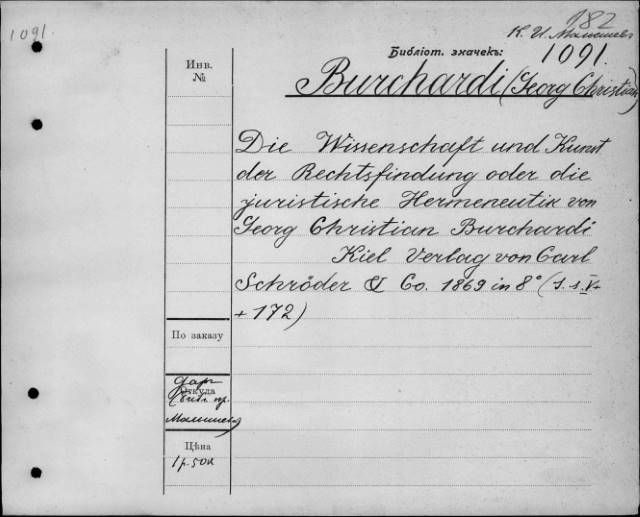 1091.
182
К. И. Малышев
Библіот. значекъ:
1091.
Инв.
№
Burchardi (Georg Christian)
Die Wissenschaft und Kunst
der Rechtsfindung oder die
juristische Hermeneutik von
Georg Christian Burchardi
Kiel Verlag von Carl
Schröder & Co. 1869 in 8° (S. s. V
+ 172)
По заказу
Откуда
Дар
(библ. пр.
Малышева)
Цѣна
1 р. 50 к